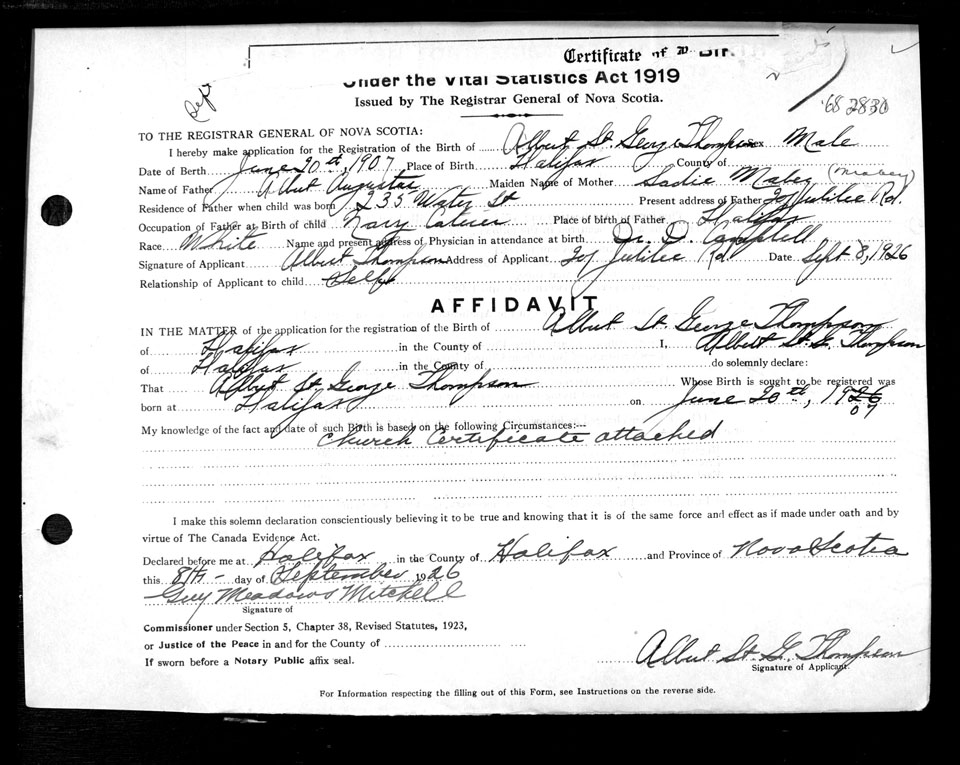 Certificate of
Under the Vital Statistics Act 1919
Issued by The Registrar General of Nova Scotia.
'68 2830
TO THE REGISTRAR GENERAL OF NOVA SCOTIA:
I hereby make application for the Registration of the Birth of Albert St. George Thompson Sex Male
Date of Berth June 20th, 1907 Place of Birth Halifax County of
Name of Father Albert Augustus Maiden Name of Mother Sadie Mabey (Mabey)
Residence of Father when child was born 235 Water St Present address of Father Jubilee Rd.
Occupation of Father at Birth of child Navy Place of birth of Father Halifax
Race White Name and present address of Physician in attendance at birth Dr. D. Campbell
Signature of Applicant Albert Thompson Address of Applicant Jubilee Rd Date Sept 8, 1926
Relationship of Applicant to child Self
AFFIDAVIT
IN THE MATTER of the application for the registration of the Birth of Albert St. George Thompson
of Halifax in the County of I, Albert St. G. Thompson
of Halifax in the County of do solemnly declare:
That Albert St George Thompson Whose Birth is sought to be registered was
born at Halifax on June 20th, 1926
07
My knowledge of the fact and date of such Birth is based on the following Circumstances:—
Church Certificate attached
I make this solemn declaration conscientiously believing it to be true and knowing that it is of the same force and effect as if made under oath and by
virtue of The Canada Evidence Act.
Declared before me at Halifax in the County of Halifax and Province of Nova Scotia
this 8th day of September 1926
Guy Meadows Mitchell
Signature of
Commissioner under Section 5, Chapter 38, Revised Statutes, 1923,
or Justice of the Peace in and for the County of
If sworn before a Notary Public affix seal.
Albert St. G. Thompson
Signature of Applicant.
For Information respecting the filling out of this Form, see Instructions on the reverse side.